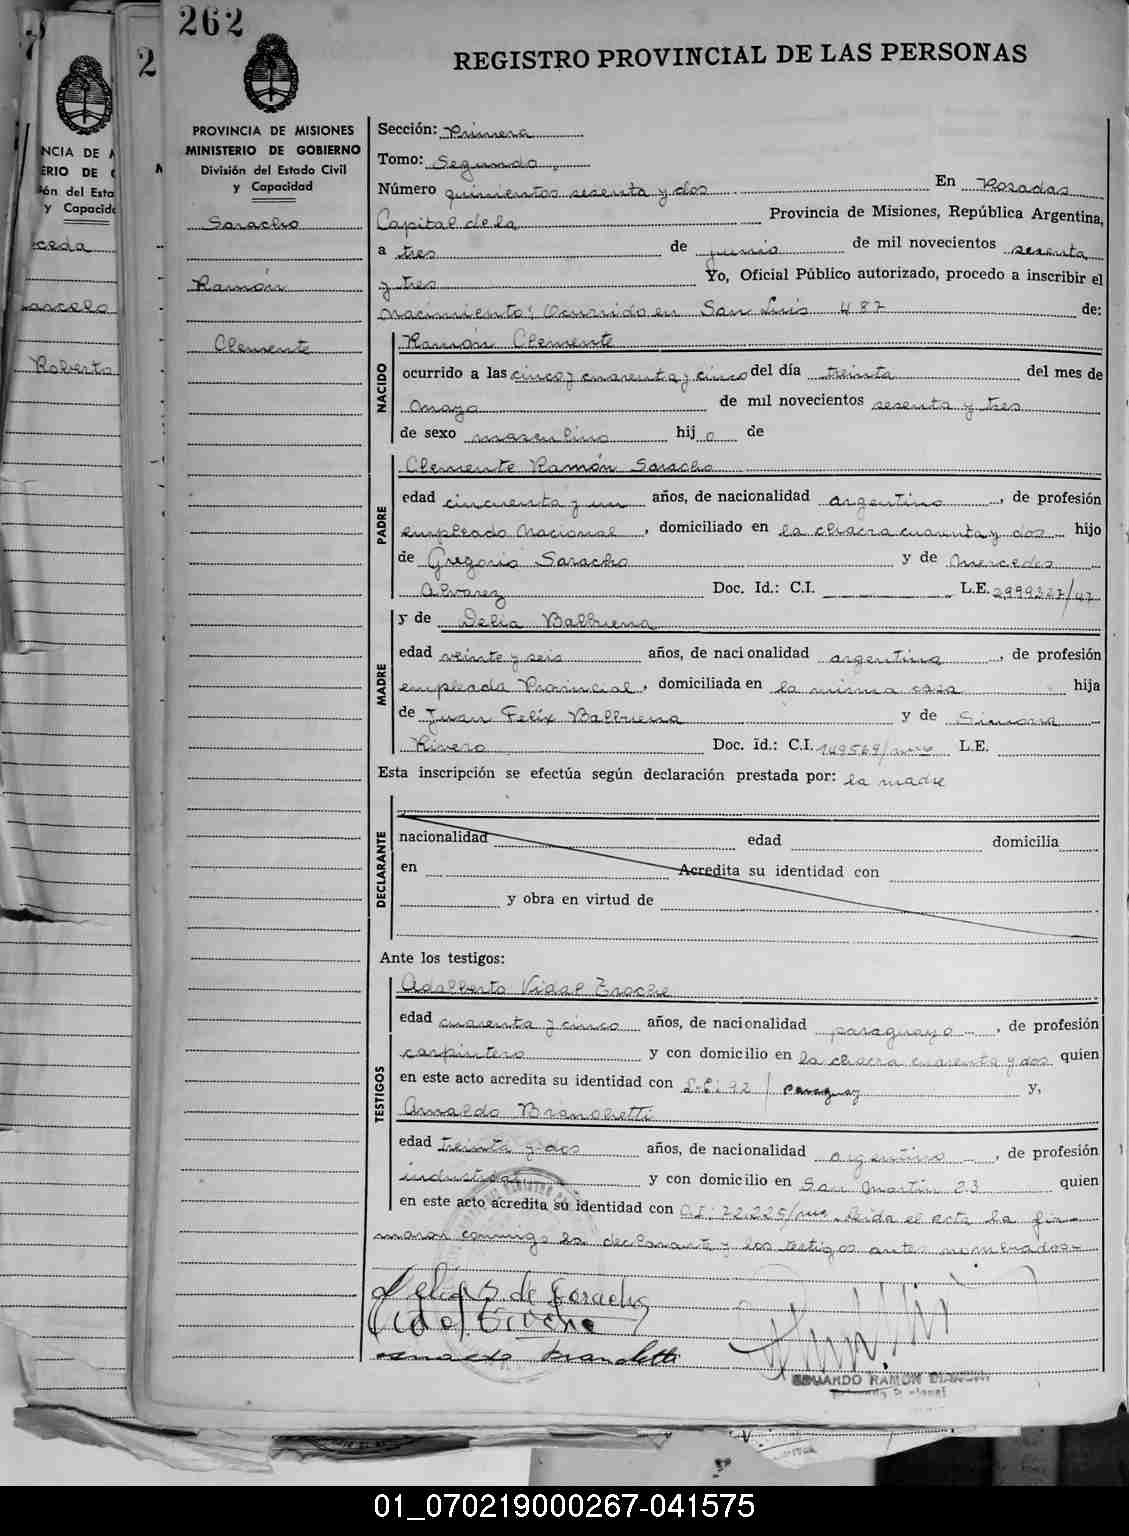 262
REGISTRO PROVINCIAL DE LAS PERSONAS
PROVINCIA DE MISIONES
MINISTERIO DE GOBIERNO
División del Estado Civil
y Capacidad
Saracho
Ramón
Clemente
Sección: Primera
Tomo: Segundo
Número quinientos sesenta y dos En Posadas
Capital de la Provincia de Misiones, República Argentina,
a tres de junio de mil novecientos sesenta
y tres Yo, Oficial Público autorizado, procedo a inscribir el
nacimiento: Ocurrido en San Luis 487 de:
NACIDO
Ramón Clemente
ocurrido a las cinco y cuarenta y cinco del día treinta del mes de
mayo de mil novecientos sesenta y tres
de sexo masculino hij o de
PADRE
Clemente Ramón Saracho
edad cincuenta y un años, de nacionalidad argentino, de profesión
empleado Nacional, domiciliado en la chacra cuarenta y dos hijo
de Gregorio Saracho y de Mercedes
Alvarez Doc. Id.: C.I. L.E. 2999327/47
MADRE
y de Delia Balbuena
edad veinte y seis años, de nacionalidad argentina, de profesión
empleada Provincial, domiciliada en la misma casa hija
de Juan Felix Balbuena y de Simona
Rivero Doc. id.: C.I. 149569/ L.E.
Esta inscripción se efectúa según declaración prestada por: la madre
DECLARANTE
nacionalidad edad domicilia
en Acredita su identidad con
y obra en virtud de
Ante los testigos:
TESTIGOS
Adalberto Vidal Eroche
edad cuarenta y cinco años, de nacionalidad paraguayo, de profesión
carpintero y con domicilio en la chacra cuarenta y dos quien
en este acto acredita su identidad con 92 / Paraguay y,
Arnaldo Branchetti
edad treinta y dos años, de nacionalidad argentino, de profesión
industrial y con domicilio en San Martín 23 quien
en este acto acredita su identidad con C.I: 72.225/ Leida el acta la fir-
maron conmigo la declarante y los testigos antes nombrados-
de Saracho
EDUARDO RAMON
01_070219000267-041575